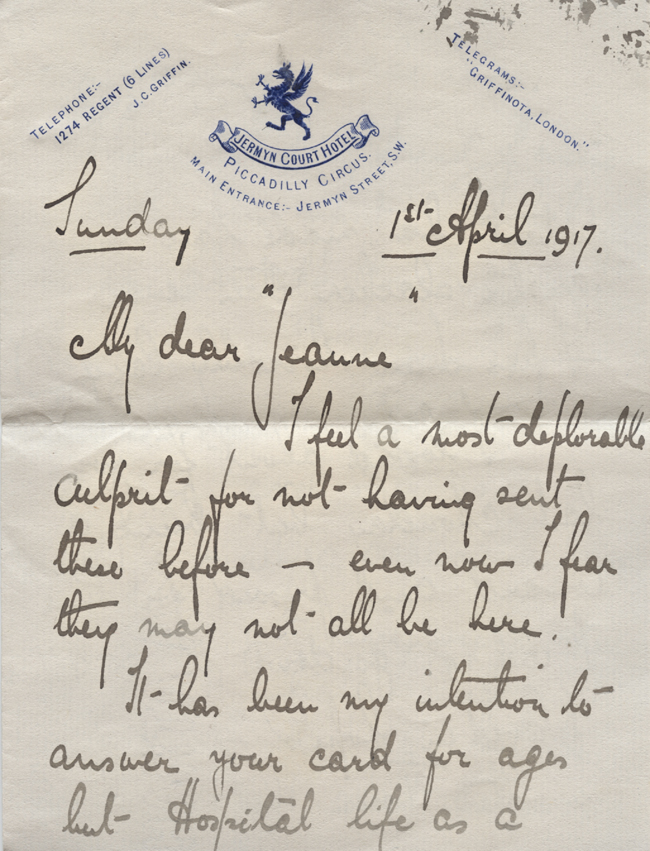 TELEPHONE:-
1274 REGENT (6 LINES)
J.C. GRIFFIN.
TELEGRAMS:-
"GRIFFINOTA, LONDON."
JERMYN COURT HOTEL
PICCADILLY CIRCUS.
MAIN ENTRANCE:- JERMYN STREET, S.W.
Sunday 1st April 1917.
My dear "Jeanne"
I feel a most deplorable
culprit for not having sent
these before — even now I fear
they may not all be here.
It has been my intention to
answer your card for ages
but Hospital life as a